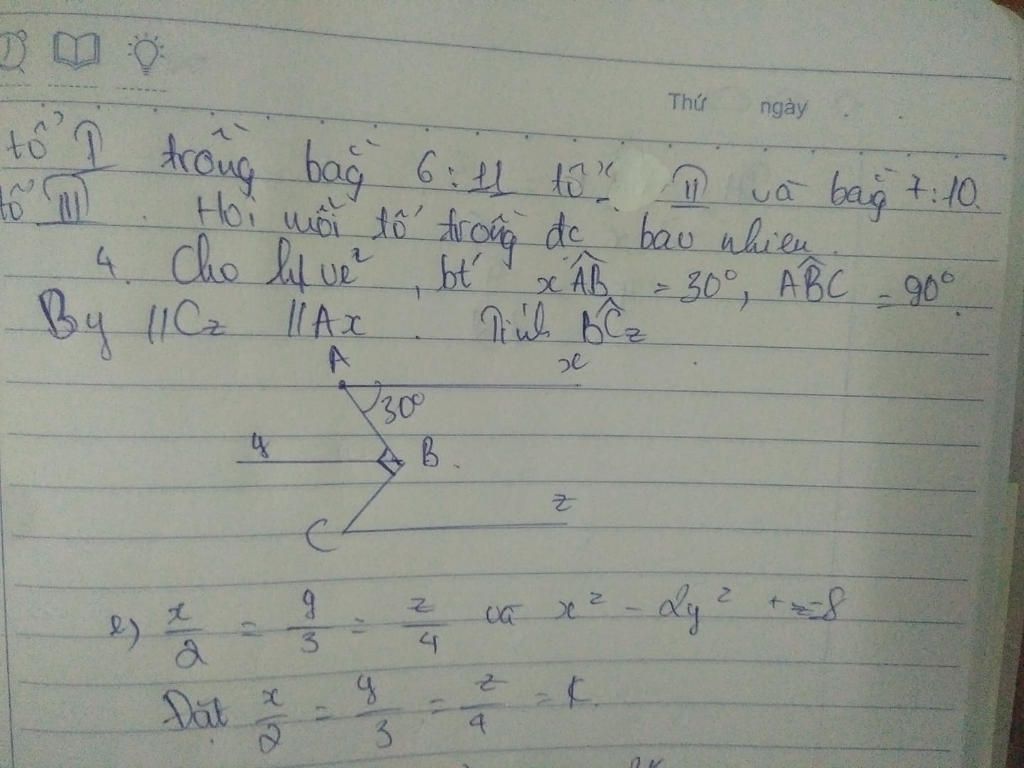 Thứ ngày
tổ I trồng bằg 6:11 tổ II và bằg 7:10
tổ III. Hỏi mỗi tổ trồng đc bao nhiêu.
4. Cho hvẽ, bt xÂB = 30°, AB̂C = 90°
By //Cz //Ax. Tính BĈz
A x
30°
y B.
C z
e) x/2 = y/3 = z/4 và x² - 2y² + z² = 8
Đặt x/2 = y/3 = z/4 = k.